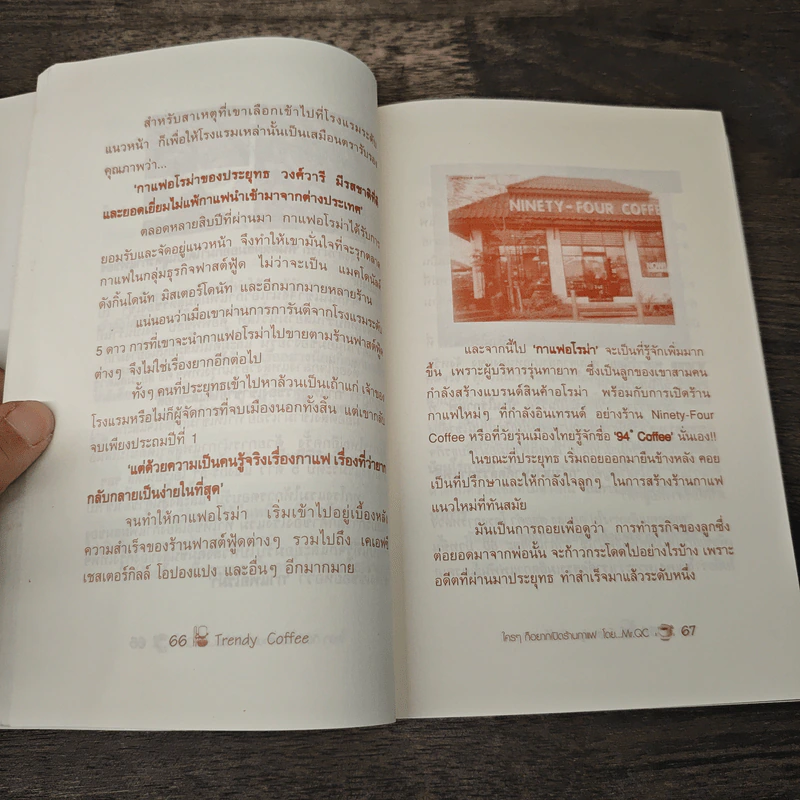 สำหรับสาเหตุที่เขาเลือกเข้าไปที่โรงแรมระดับ
แนวหน้า ก็เพื่อให้โรงแรมเหล่านั้นเป็นเสมือนตรารับรอง
คุณภาพว่า...
'กาแฟอโรม่าของประยุทธ วงศ์วารี มีรสชาติที่ดี
และยอดเยี่ยมไม่แพ้กาแฟนำเข้ามาจากต่างประเทศ'
ตลอดหลายสิบปีที่ผ่านมา กาแฟอโรม่าได้รับการ
ยอมรับและจัดอยู่แนวหน้า จึงทำให้เขามั่นใจที่จะรุกตลาด
กาแฟในกลุ่มธุรกิจฟาสต์ฟู้ด ไม่ว่าจะเป็น แมคโดนัลด์
ดังกิ้นโดนัท มิสเตอร์โดนัท และอีกมากมายหลายร้าน
แน่นอนว่าเมื่อเขาผ่านการการันตีจากโรงแรมระดับ
5 ดาว การที่เขาจะนำกาแฟอโรม่าไปขายตามร้านฟาสต์ฟู้ด
ต่างๆ จึงไม่ใช่เรื่องยากอีกต่อไป
ทั้งๆ คนที่ประยุทธเข้าไปหาล้วนเป็นเถ้าแก่ เจ้าของ
โรงแรมหรือไม่ก็ผู้จัดการที่จบเมืองนอกทั้งสิ้น แต่เขากลับ
จบเพียงประถมปีที่ 1
'แต่ด้วยความเป็นคนรู้จริงเรื่องกาแฟ เรื่องที่ว่ายาก
กลับกลายเป็นง่ายในที่สุด'
จนทำให้กาแฟอโรม่า เริ่มเข้าไปอยู่เบื้องหลัง
ความสำเร็จของร้านฟาสต์ฟู้ดต่างๆ รวมไปถึง เคเอฟซี
เชสเตอร์กิลล์ โอปองแปง และอื่นๆ อีกมากมาย
66 Trendy Coffee
NINETY-FOUR COFFE
และจากนี้ไป 'กาแฟอโรม่า' จะเป็นที่รู้จักเพิ่มมาก
ขึ้น เพราะผู้บริหารรุ่นทายาท ซึ่งเป็นลูกของเขาสามคน
กำลังสร้างแบรนด์สินค้าอโรม่า พร้อมกับการเปิดร้าน
กาแฟใหม่ๆ ที่กำลังอินเทรนด์ อย่างร้าน Ninety-Four
Coffee หรือที่วัยรุ่นเมืองไทยรู้จักชื่อ '94° Coffee' นั่นเอง!!
ในขณะที่ประยุทธ เริ่มถอยออกมายืนข้างหลัง คอย
เป็นที่ปรึกษาและให้กำลังใจลูกๆ ในการสร้างร้านกาแฟ
แนวใหม่ที่ทันสมัย
มันเป็นการถอยเพื่อดูว่า การทำธุรกิจของลูกซึ่ง
ต่อยอดมาจากพ่อนั้น จะก้าวกระโดดไปอย่างไรบ้าง เพราะ
อดีตที่ผ่านมาประยุทธ ทำสำเร็จมาแล้วระดับหนึ่ง
ใครๆ ก็อยากเปิดร้านกาแฟ โดย...Mr.QC 67